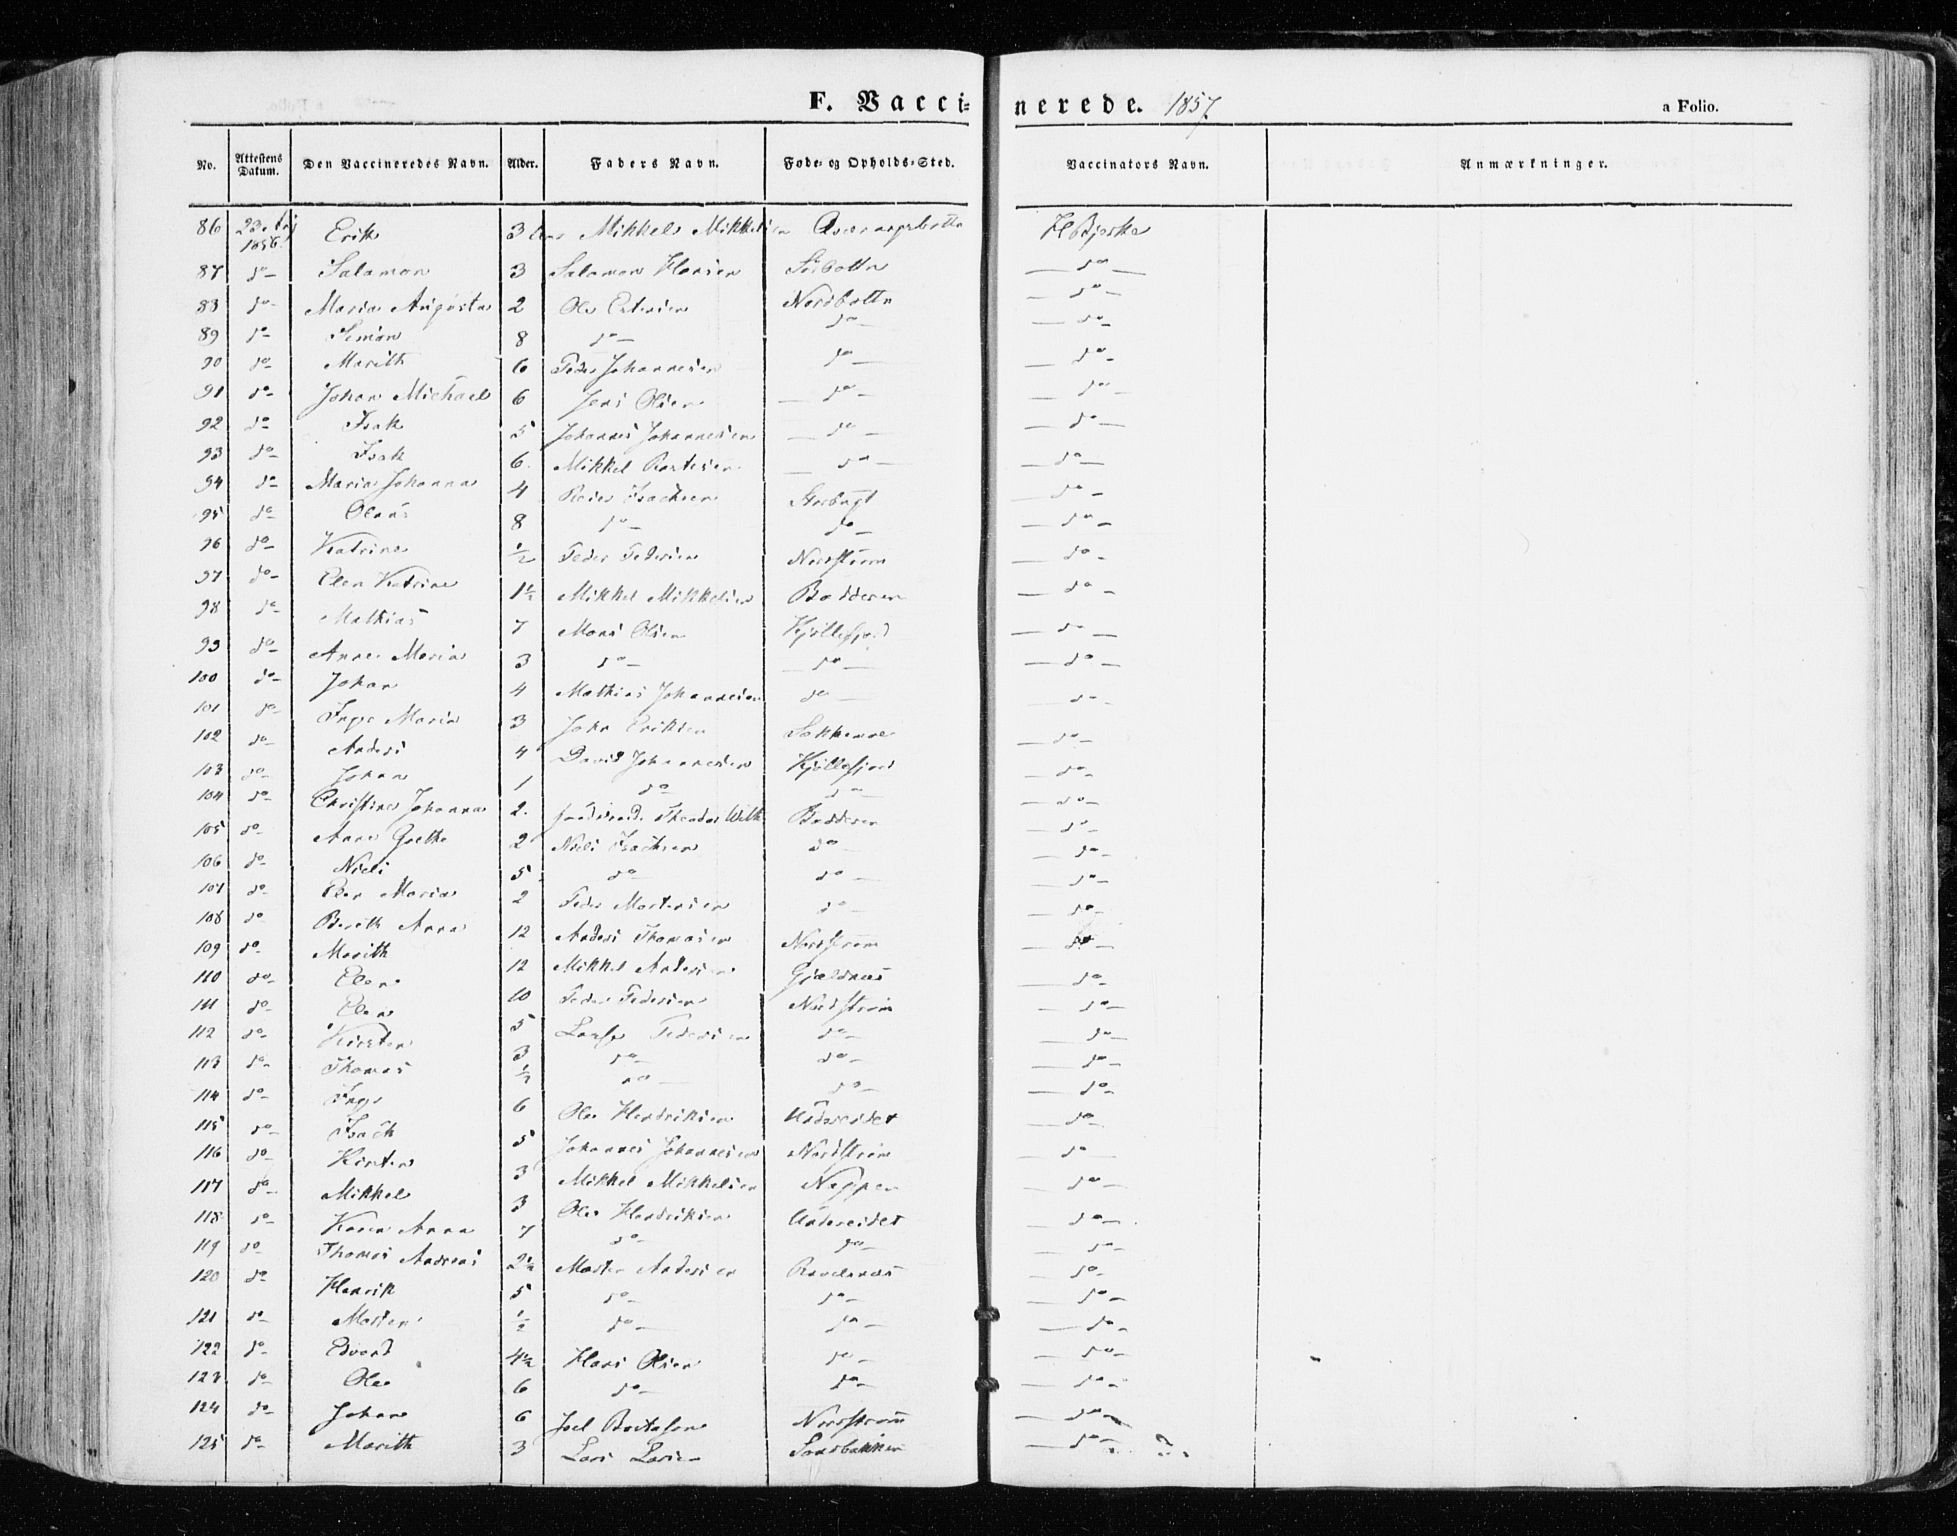 F. Vacci= nerede. 1857
a Folio.
No. Attestens Datum. Den Vaccineredes Navn. Alder. Faders Navn. Føde- og Opholds-Sted. Vaccinators Navn. Anmærkninger.
86 1856 Erik 3 Mikkel Mikkelsen H Bjerke
87 do Salamon 3 Salamon Hansen Sørbottn do
88 do Maria Augusta 2 Ole Nordbottn do
89 do Simon 8 do do do
90 do Marith 6 Peder Johannesen do do
91 do Johan Michael 6 Jens Olsen do do
92 do Isak 5 Johannes Johannesen do do
93 do Isak 6 Mikkel do do
94 do Maria Johanna 4 Isachsen Storbugt do
95 do Olaus 8 do do do
96 do Katrine 1/2 Peder Pedersen Nordstrøm do
97 do Elen Katrine 1 1/2 Mikkel Mikkelsen Badderen do
98 do Mathias 7 Mons Olsen Kjøllefjord do
99 do Anne Maria 3 do do do
100 do Johan 4 Mathias Johannesen do do
101 do Inger Maria 3 John Eriksen do
102 do Anders 4 David Johannesen Kjøllefjord do
103 do Johan 1 do do do
104 do Christine Johanna 2 Theodor Wilh Badderen do
105 do Anne Grethe 2 Niels Isachsen do do
106 do Niels 5 do do do
107 do Elen Maria 2 Peder Mortensen do do
108 do Bereth Anna 12 Anders Thomasen Nordstrøm do
109 do Marith 12 Mikkel Andersen do
110 do Elen 10 Peder Pedersen Nordstrøm do
111 do Elen 5 Pedersen do do
112 do Kirsten 3 do do do
113 do Thomas 1/2 do do do
114 do Inger 6 Ole Hendriksen Undereidet do
115 do Isach 5 Johannes Johannesen Nordstrøm do
116 do Kirsten 3 Mikkel Mikkelsen do
117 do Mikkel 3 Ole Hendriksen Undereidet do
118 do Karen Anna 7 do do do
119 do Thomas Andreas 2 1/2 Morten Andersen do
120 do Henrik 5 do do do
121 do Morten 1/2 do do do
122 do Edvard 4 1/2 Hans Olsen do do
123 do Ole 6 do do do
124 do Johan 6 Joel Nordstrøm do
125 do Marith 3 Lars Larsen Sandbakken do